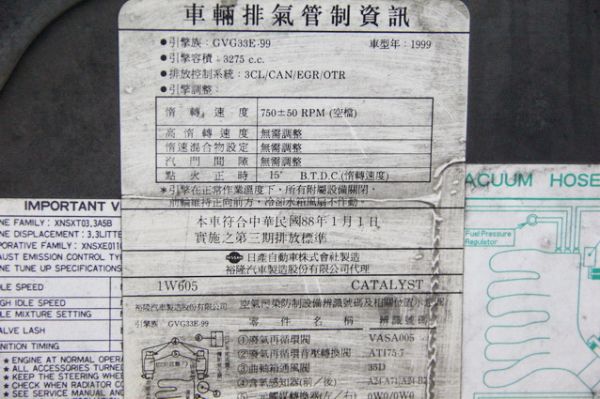 車輛排氣管制資訊
●引擎族：GVG33E-99 車型年：1999
●引擎容積：3275 c.c.
●排放控制系統：3CL/CAN/EGR/OTR
●引擎調整：
惰轉速度 750±50 RPM (空檔)
高惰轉速度 無需調整
惰速混合物設定 無需調整
汽門間隙 無需調整
點火正時 15° B.T.D.C.(惰轉速度)
*引擎在正常作業溫度下，所有附屬設備關閉，
前輪維持正向前方，冷卻水箱風扇不作動。
本車符合中華民國88年1月1日
實施之第三期排放標準
NISSAN 日產自動車株式會社製造
裕隆汽車製造股份有限公司代理
1W605 CATALYST
裕隆汽車製造股份有限公司 空氣污染防制設備辨識號碼及相關位置示意圖
引擎族 GVG33E-99
零件名稱 辨識號碼
①廢氣再循環閥 VASA005
②廢氣再循環背壓轉換閥 AT175-7
③曲軸箱通風閥 35D
④含氧感知器(前/後)
⑤三元觸媒轉換器(左/右) 0W0/0W0
IMPORTANT V
NE FAMILY: XNSXT03.3A5B
NE DISPLACEMENT: 3.3LITE
PORATIVE FAMILY: XNSXE0110
AUST EMISSION CONTROL TY
NE TUNE UP SPECIFICATIONS
SPEED
IGH IDLE SPEED
LE MIXTURE SETTING
ALVE LASH
NITION TIMING
★ ENGINE AT NORMAL OPERA
★ ALL ACCESSORIES TURNED
★ KEEP THE STEERING WHE
★ CHECK WHEN RADIATOR CO
★ SEE SERVICE MANUAL AND
ACUUM HOSE
Fuel Pressure
Regulator